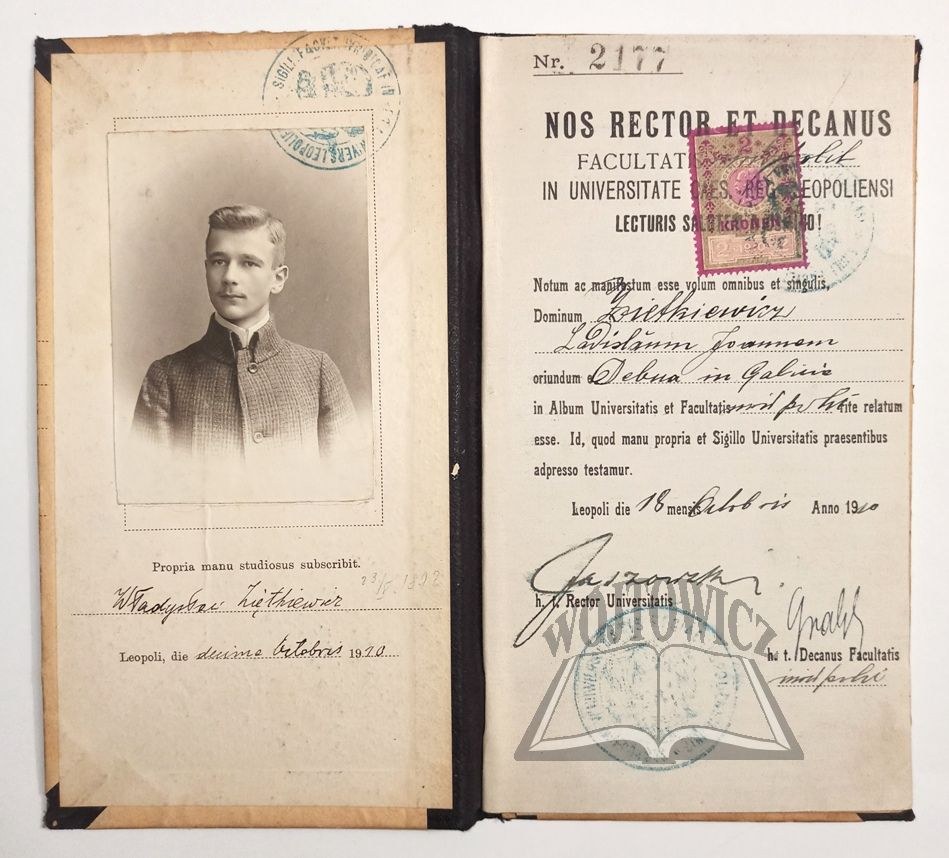 SIGILL. FACULT.
UNIVERS. LEOPOLIE
Propria manu studiosus subscribit.
Władysław Ziętkiewicz
Leopoli, die decima Octobris 1910
Nr. 2177
NOS RECTOR ET DECANUS
FACULTATI
IN UNIVERSITATE CAES. REG. LEOPOLIENSI
LECTURIS SALUTEM
2
KRONEN
2 2
Notum ac manifestum esse volum omnibus et singulis,
Dominum Ziethiewicz
Ladislaum Joannem
oriundum e Debna in Galicia
in Album Universitatis et Facultatis rite relatum
esse. Id, quod manu propria et Sigillo Universitatis praesentibus
adpresso testamur.
Leopoli die 18 mensis Octobris Anno 1910
h. t. Rector Universitatis
WÓJTOWICZ
h. t. Decanus Facultatis